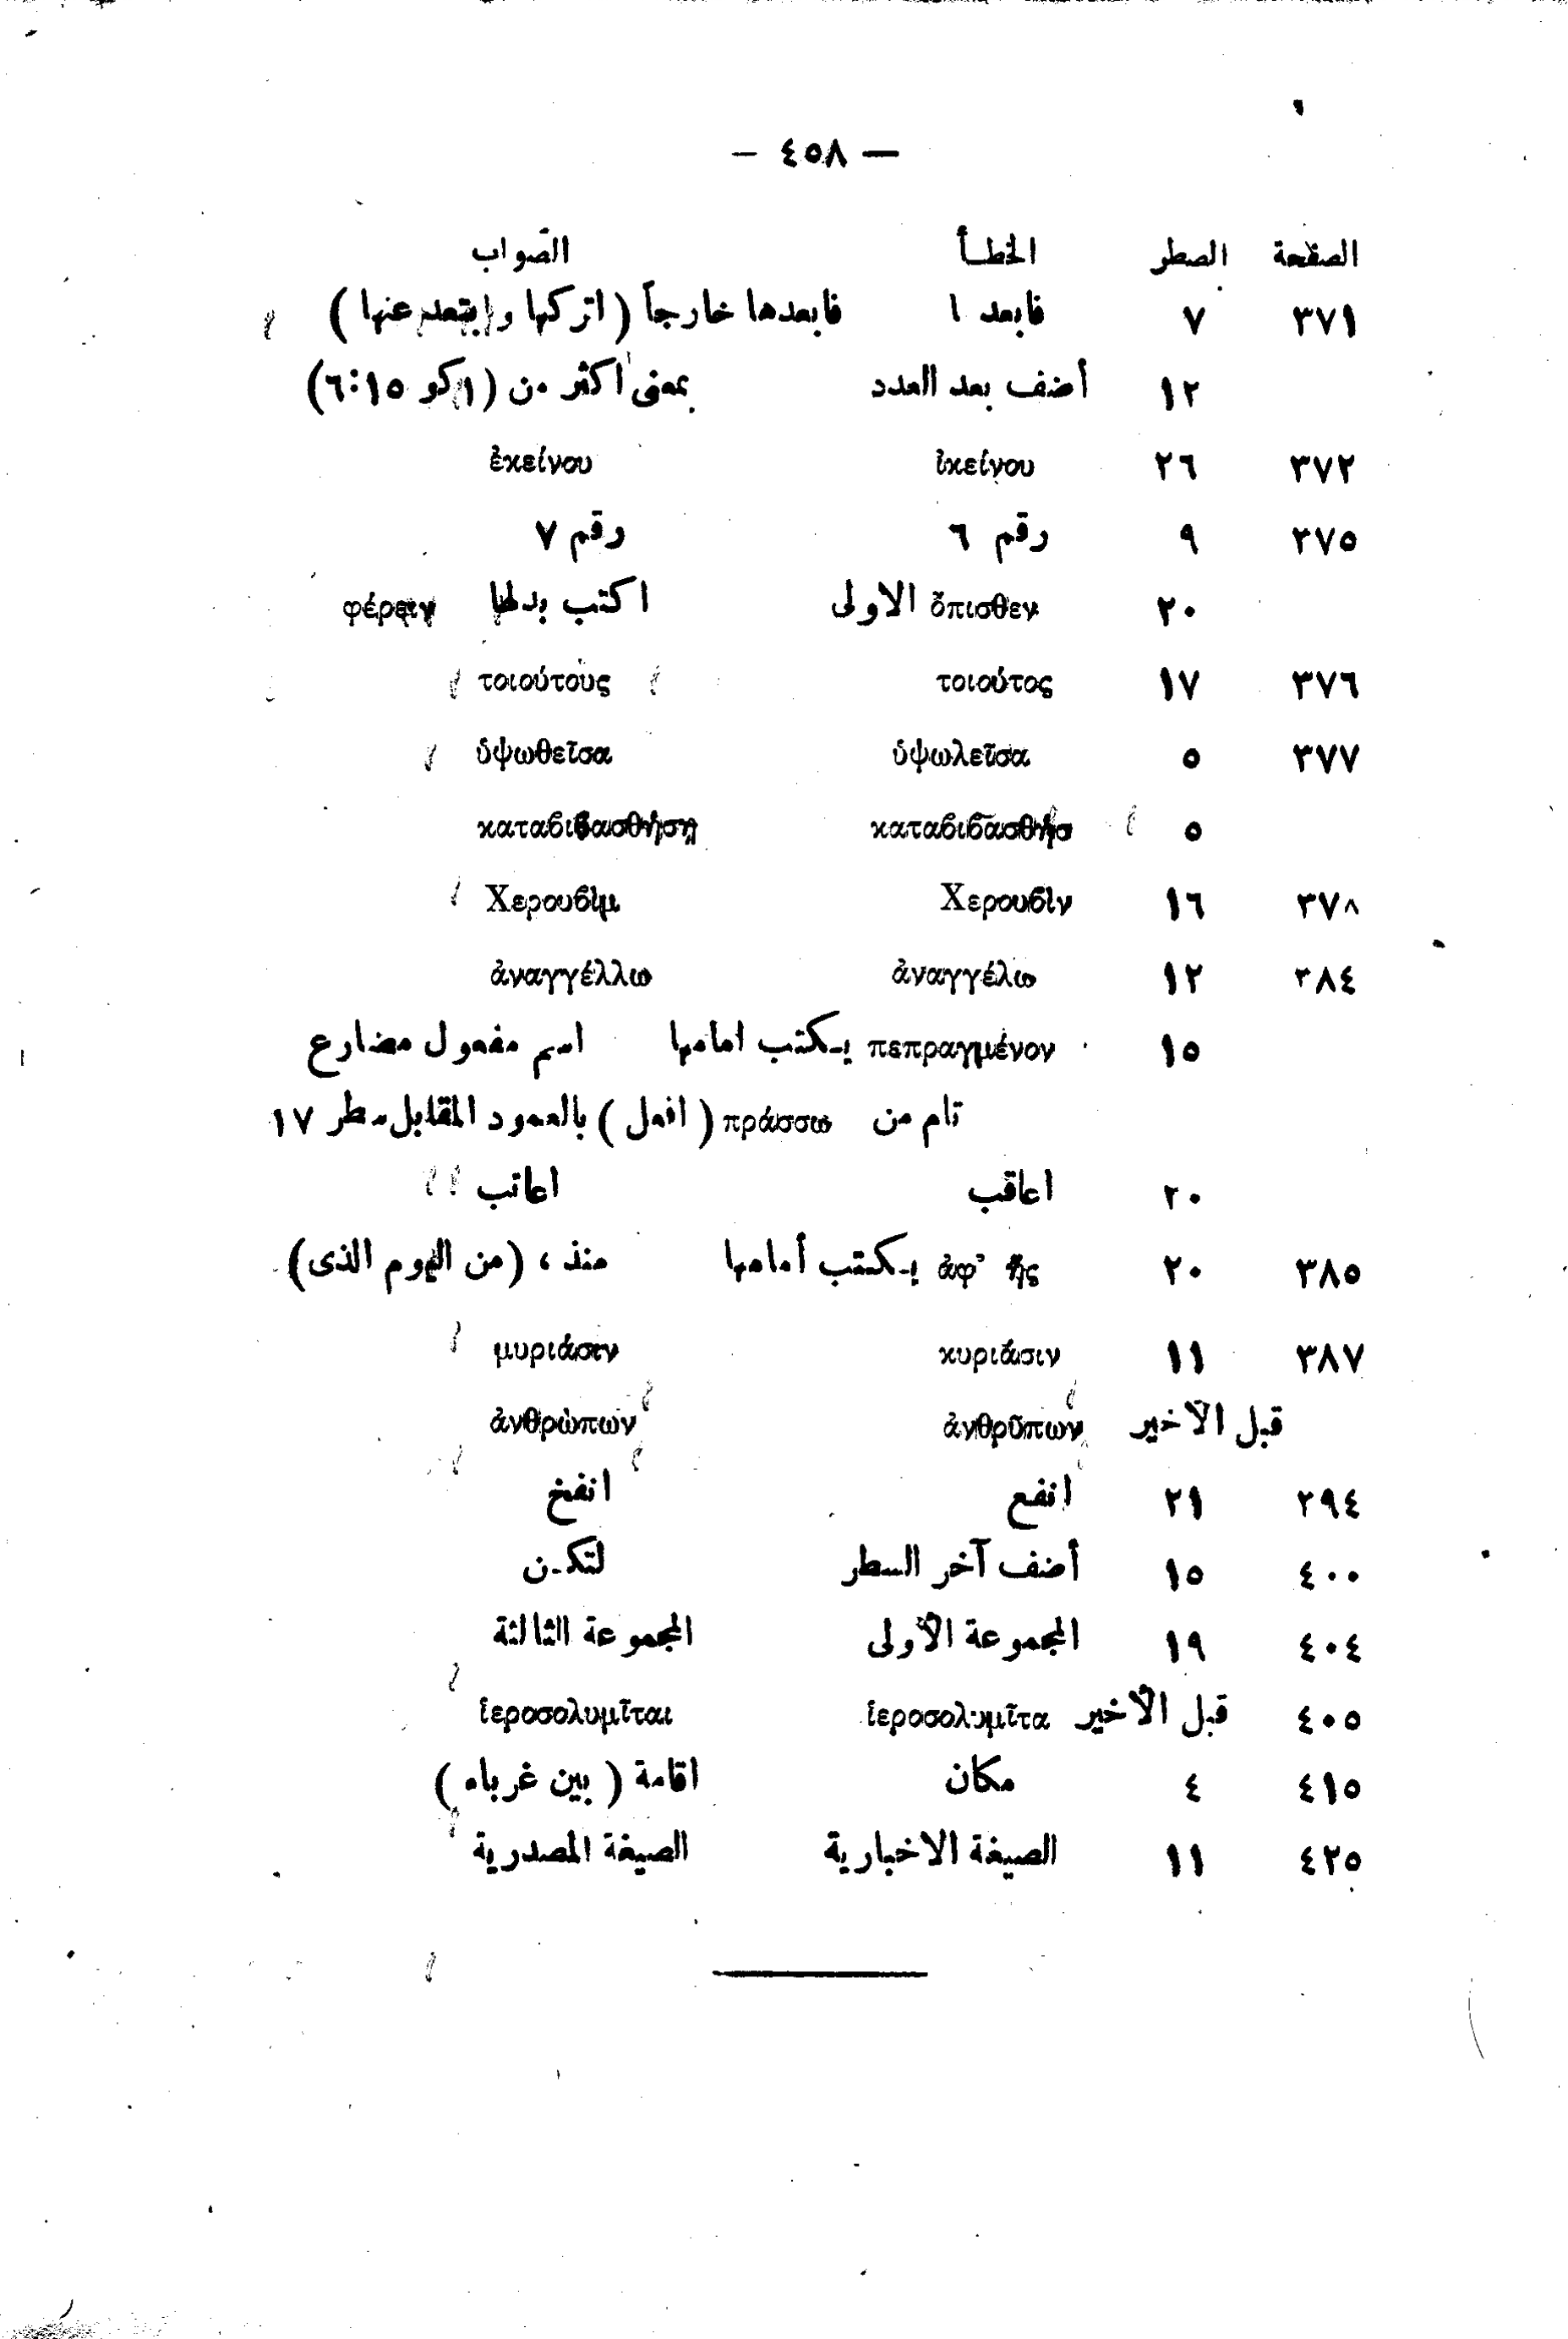 — ٤٥٨ —
الصفحة الصطر الخطأ الصواب
٣٧١ ٧ فابعد ا فابعدها خارجاً ( اتركها وابتعد عنها )
١٢ أضف بعد العدد بمعنى أكثر من (١كو ١٥:٦)
٣٧٢ ٢٦ ἰκείνου ἐκείνου
٣٧٥ ٩ رقم ٦ رقم ٧
٢٠ ὄπισθεν الاولى اكتب بدلها φέρειν
٣٧٦ ١٧ τοιούτος τοιούτους
٣٧٧ ٥ ὑψωλεῖσα ὑψωθεῖσα
٥ καταϐιϐασθήσ καταϐιϐασθήσῃ
٣٧٨ ١٦ Χερουϐὶν Χερουϐὶμ
٣٨٤ ١٢ ἀναγγέλω ἀναγγέλλω
١٥ πεπραγμένον يكتب امامها اسم مفعول مضارع
تام من πράσσω ( افعل ) بالعمود المقابل سطر ١٧
٢٠ اعاقب اعاتب
٣٨٥ ٢٠ ἀφ’ ἧς يكتب أمامها منذ ، (من اليوم الذى)
٣٨٧ ١١ κυριάσιν μυριάσιν
قبل الأخير ἀνθρῦπων ἀνθρώπων
٢٩٤ ٢١ انفع انفخ
٤٠٠ ١٥ أضف آخر السطر لتكن
٤٠٤ ١٩ المجموعة الأولى المجموعة الثالثة
٤٠٥ قبل الأخير ἱεροσολυμῖτα ἱεροσολυμῖται
٤١٥ ٤ مكان اقامة ( بين غرباء )
٤٢٥ ١١ الصيغة الاخبارية الصيغة المصدرية